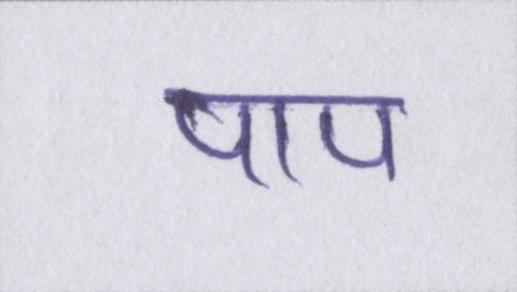 पाप